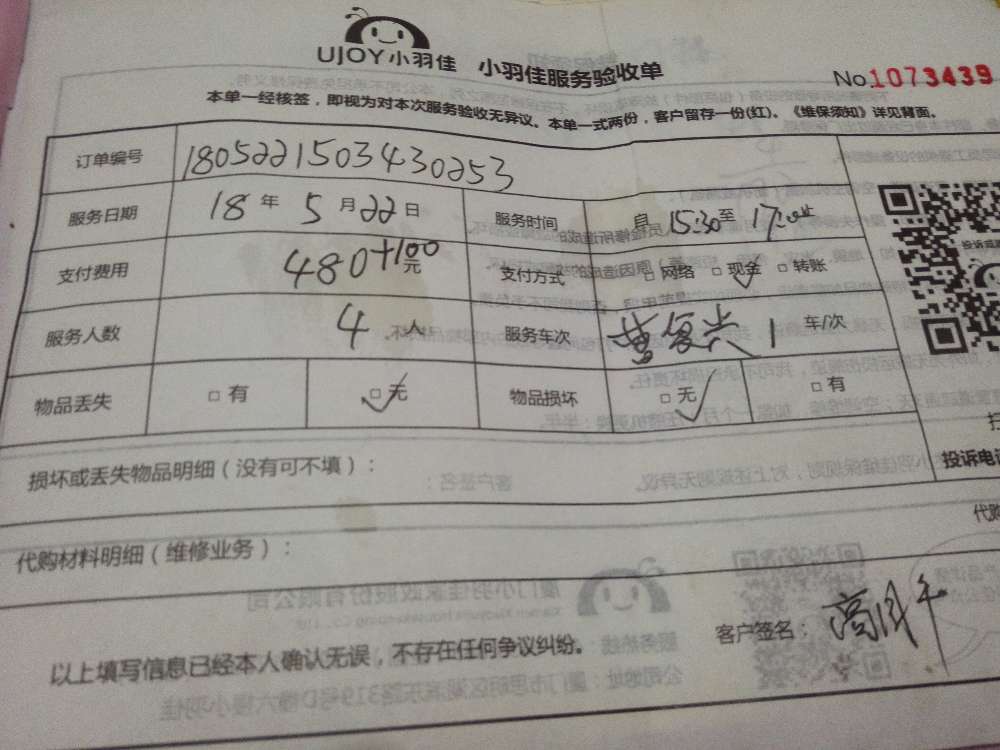 UJOY小羽佳 小羽佳服务验收单
No.1073439
本单一经核签，即视为对本次服务验收无异议。本单一式两份，客户留存一份(红)。《维保须知》详见背面。
订单编号 1805221503430253
服务日期 18 年 5 月 22 日 服务时间 自 15:30 至 17:00 止
支付费用 480+100 元 支付方式 □ 网络 □ 现金 ✓ □ 转账
服务人数 4 人 服务车次 1 车/次
物品丢失 □ 有 □ 无 ✓ 物品损坏 □ 无 ✓ □ 有
损坏或丢失物品明细（没有可不填）：
投诉电
代购材料明细（维修业务）：
代购
以上填写信息已经本人确认无误，不存在任何争议纠纷。
客户签名：